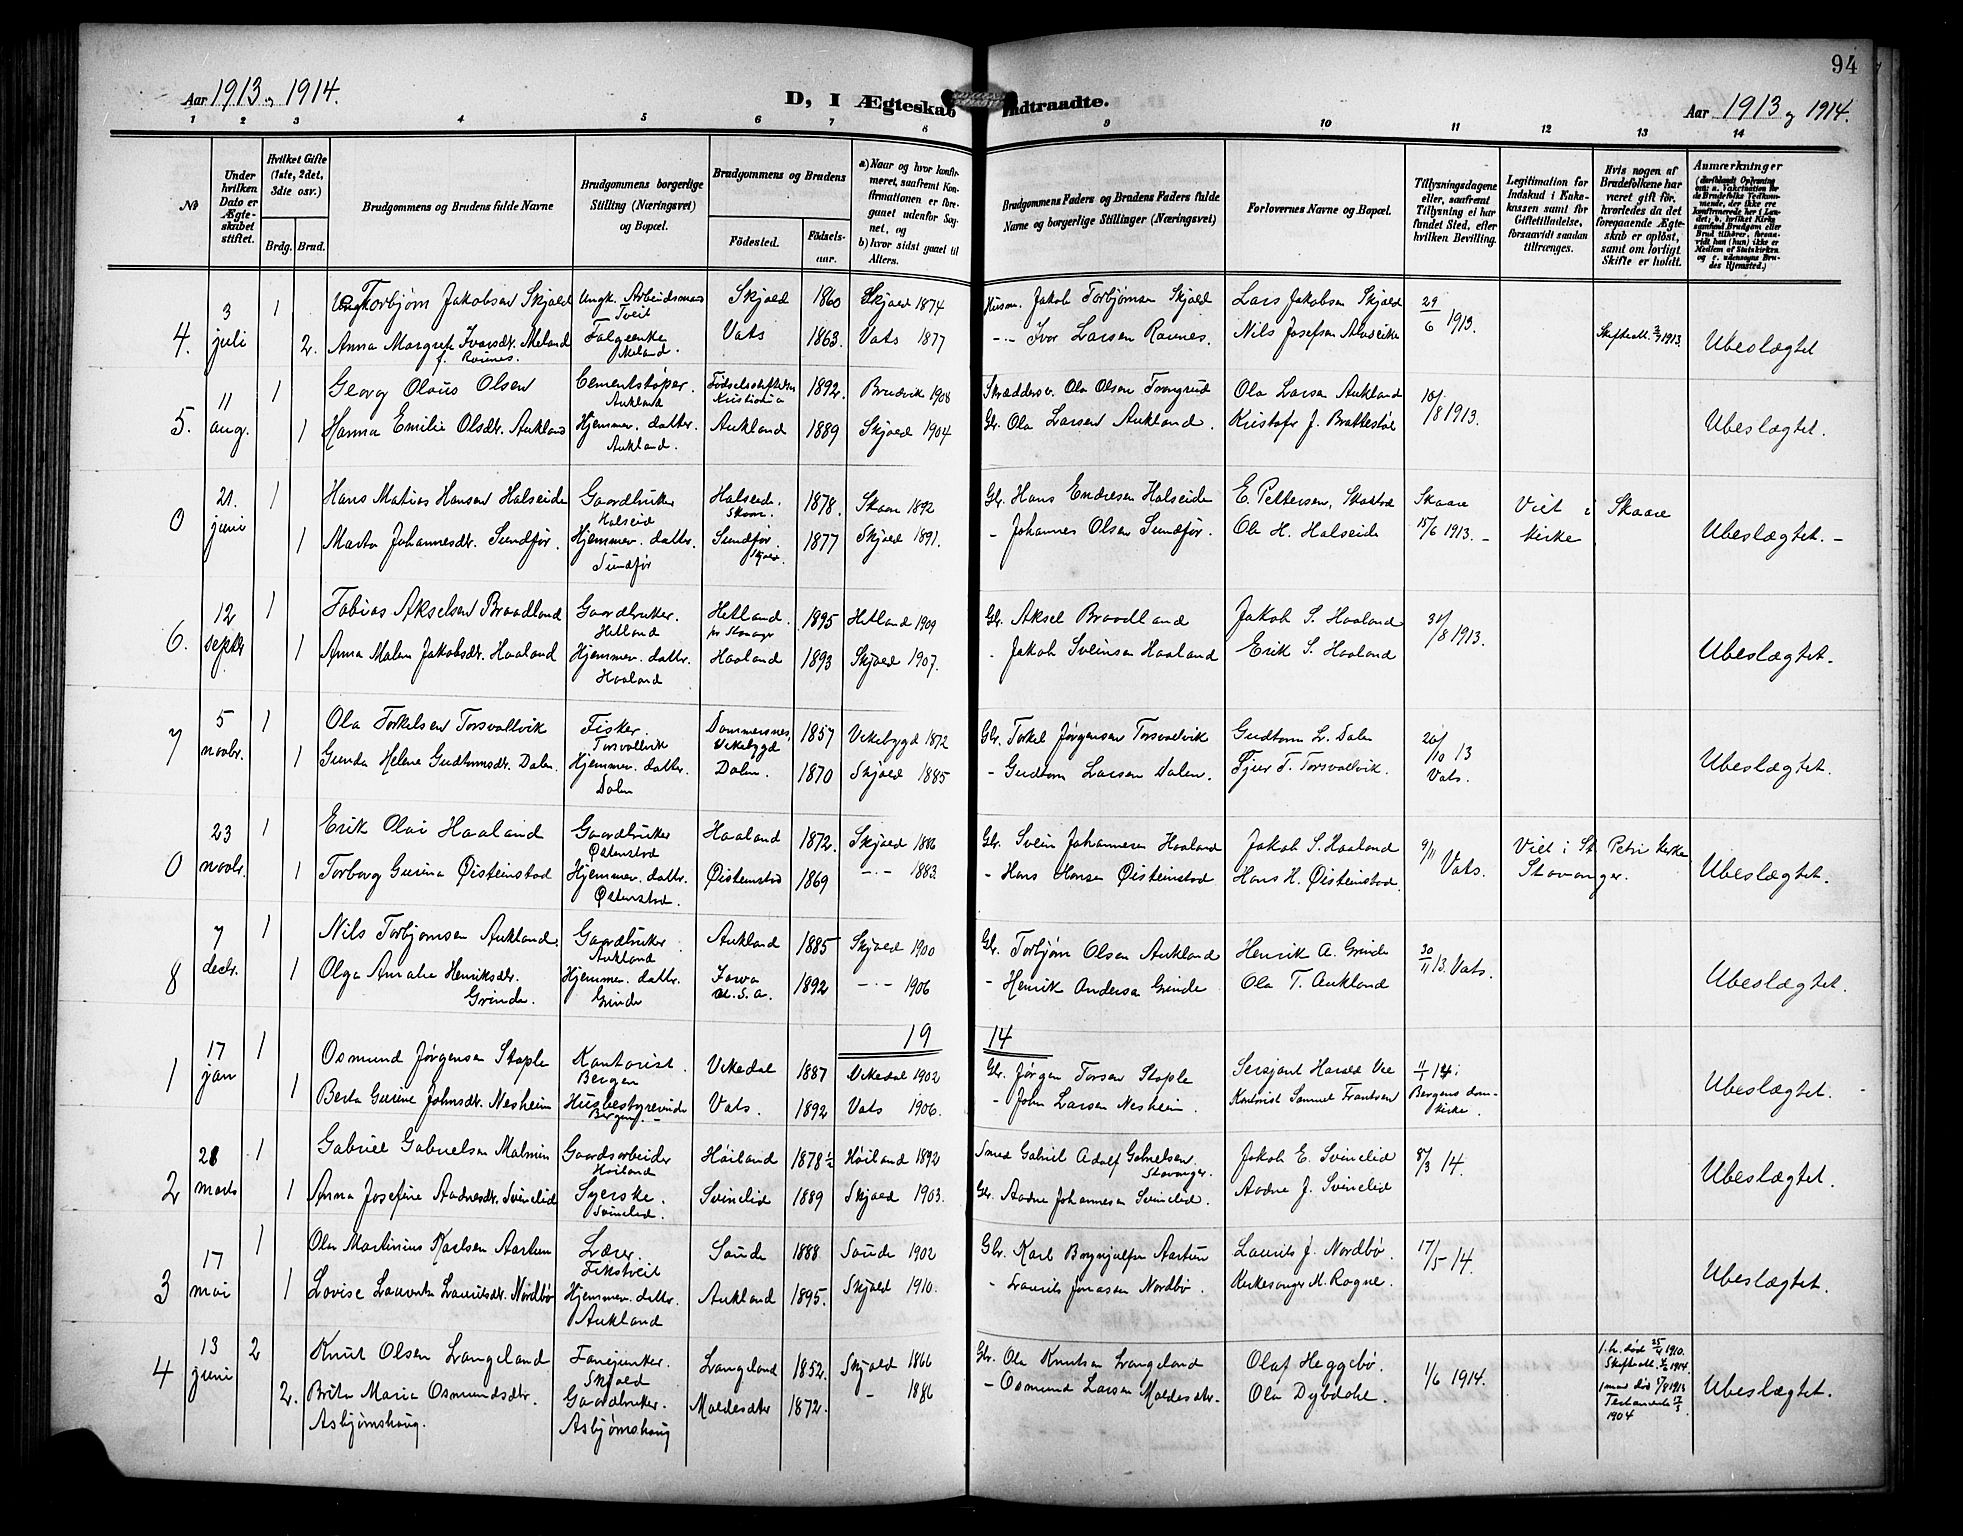 94
Aar 1913 og 1914.
D, I Ægteskab Indtraadte.
Aar 1913 og 1914.
1 2 3 4 5 6 7 8 9 10 11 12 13 14
No
Under hvilken Dato er Ægteskabet stiftet.
Hvilket Gifte (1ste, 2det, 3die osv.)
Brdg. Brud.
Brudgommens og Brudens fulde Navne
Brudgommens borgerlige Stilling (Næringsvei) og Bopæl.
Brudgommens og Brudens
Födested.
Födselsaar.
a) Naar og hvor konfirmeret, saafremt Konfirmationen er foregaaet udenfor Sognet, og
b) hvor sidst gaaet til Alters.
Brudgommens Faders og Brudens Faders fulde Navne og borgerlige Stillinger (Næringsvei)
Forlovernes Navne og Bopæl.
Tillysningsdagene eller, saafremt Tillysning ei har fundet Sted, efter hvilken Bevilling.
Legitimation for Indskud i Enkekassen samt for Giftetilladelse, forsaavidt saadan tiltrænges.
Hvis nogen af Brudefolkene har været gift för, hvorledes da det foregaaende Ægteskab er oplöst, samt om lovligt Skifte er holdt.
Anmærkninger
4. 3 juli 1 Ungk Torbjørn Jakobsen Skjold Ungk. Arbeidsmand Tveit Skjold 1860 Skjold 1874 Husm. Jakob Torbjørnsen Skjold Lars Jakobsen Skjold 29/6 1913.
2. Anna Margrete Ivarsdtr. Meland f. Raunes. Folgeenke Meland. Vats 1863. Vats 1877 -·- Ivor Larsen Raunes. Nils Josefsen Skifteatt. 1913. Ubeslægtet
5. 11 aug. 1 Georg Olaus Olsen Cementstøper. Aukland Fødselsstiftelsen Kristiania 1892. Bruvik 1908 Skrædders. Ola Olsen Ola Larsen Aukland 10/8 1913.
1 Hanna Emilie Olsdtr. Aukland Hjemmev. datter. Aukland. Aukland 1889 Skjold 1904 Gbr. Ola Larsen Aukland. Kristofer J. Brattestøl Ubeslægtet.
0 21. juni 1 Hans Matias Hansen Halseide Gaardbruker Halseid Halseide. Skaare. 1878. Skaare 1892 Gbr. Hans Endresen Halseide E. Pettersen, Skaare 15/6 1913. - Viet i Skaare kirke
1 Marta Johannesdtr. Sundfør. Hjemmev. datter. Sundfør Sundfør. Skjold 1877 Skjold 1891. - Johannes Olsen Sundfør. Ola H. Halseide Ubeslægtet. -
6. 12 septbr 1 Tobias Akselsen Braadland Gaardbruker. Hetland Hetland. pr Stavanger 1895 Hetland 1909 Gbr. Aksel Braadland Jakob S. Haaland 31/8 1913.
1 Anna Malene Jakobsdtr. Haaland Hjemmev. datter. Haaland Haaland 1893 Skjold 1907. - Jakob Sveinsen Haaland Erik S. Haaland Ubeslægtet.
7 5 novbr. 1 Ola Torkelsen Torsvallvik Fisker. Torsvallvik Dommersnes, Vikebygd 1857 Vikebygd 1872 Gbr. Torkel Jørgensen Torsvallvik Gudtorm L. Dalen 20/10 13 Vats.
1 Gunda Helene Gudtormsdtr. Dalen. Hjemmev. datter. Dalen Dalen. 1870 Skjold 1885 - Gudtorm Larsen Dalen. T. Torsvallvik. Ubeslægtet.
0 23 novbr. 1 Erik Olai Haaland Gaardbruker Østenstad Haaland 1872. Skjold 1886 Gbr. Svein Johannesen Haaland Jakob S. Haaland 9/11 Vats. Viet i St Petri kirke Stavanger.
1 Torborg Gurina Øisteinstad Hjemmev. datter. Østenstad. Øisteinstad 1869 -·- 1883. - Hans Hansen Øisteinstad Hans H. Øisteinstad. Ubeslægtet.
8 7 decbr. 1 Nils Torbjørnsen Aukland. Gaardbruker. Aukland Aukland 1885 Skjold 1900 Gbr. Torbjørn Olsen Aukland Henrik A. Grinde 30/11 13. Vats.
1 Olga Amalie Henriksdtr. Grinde. Hjemmev. datter. Grinde Iowa U.S.A. 1892 -·- 1906 - Henrik Andersen Grinde Ola T. Aukland Ubeslægtet.
19 14
1 17 jan 1 Osmund Jørgensen Stople Kontorist. Bergen Vikedal 1887 Vikedal 1902 Gbr. Jørgen Torsen Stople Sersjant Harald Vee 1/1 14 i Bergens domkirke.
1 Berta Gurine Johnsdtr. Nesheim Husbestyrerinde Bergen. - Vats. 1892 Vats 1906. - John Larsen Nesheim. Kontorist Samuel Frantsen Ubeslægtet.
2 28 marts 1 Gabriel Gabrielsen Malmin Gaardsarbeider Høiland Høiland 1878 1/2 Høiland 1892 Smed Gabriel Adolf Gabrielsen, Stavanger. Jakob E. Svinelid 8/3 14.
1 Anna Josefine Aadnesdtr. Svinelid Syerske. Svinelid. Svinelid 1889 Skjold 1903. Gbr. Aadne Johannesen Svinelid. Aadne J. Svinelid Ubeslægtet.
3 17 mai 1 Olav Martinius Karlsen Aartun Lærer. Saude 1888. Saude 1902 Gbr. Karl Brynjulfsen Aartun Laurits J. Nordbø. 17/5 14.
1 Lovise Laurentse Lauritsdtr. Nordbø Hjemmev. datter. Aukland Aukland 1895. Skjold 1910. - Laurits Jonassen Nordbø. Kirkesanger M. Rogne. Ubeslægtet.
4 13 juni 2 Knut Olsen Langeland Fanejunker. Skjold Langeland 1852. Skjold 1866 Gbr. Ola Knutsen Langeland Olaf Heggebø. 1/6 1914. 1. h. død 25/4 1910. Skifteatt. 1914.
2. Brita Maria Osmundsdtr. Asbjørnshaug. Gaardbruker. Asbjørnshaug 1872. - 1886 - Osmund Larsen Ola Dybdahl. 1 mand død 5/8 1913 Testamente 1904 Ubeslægtet.